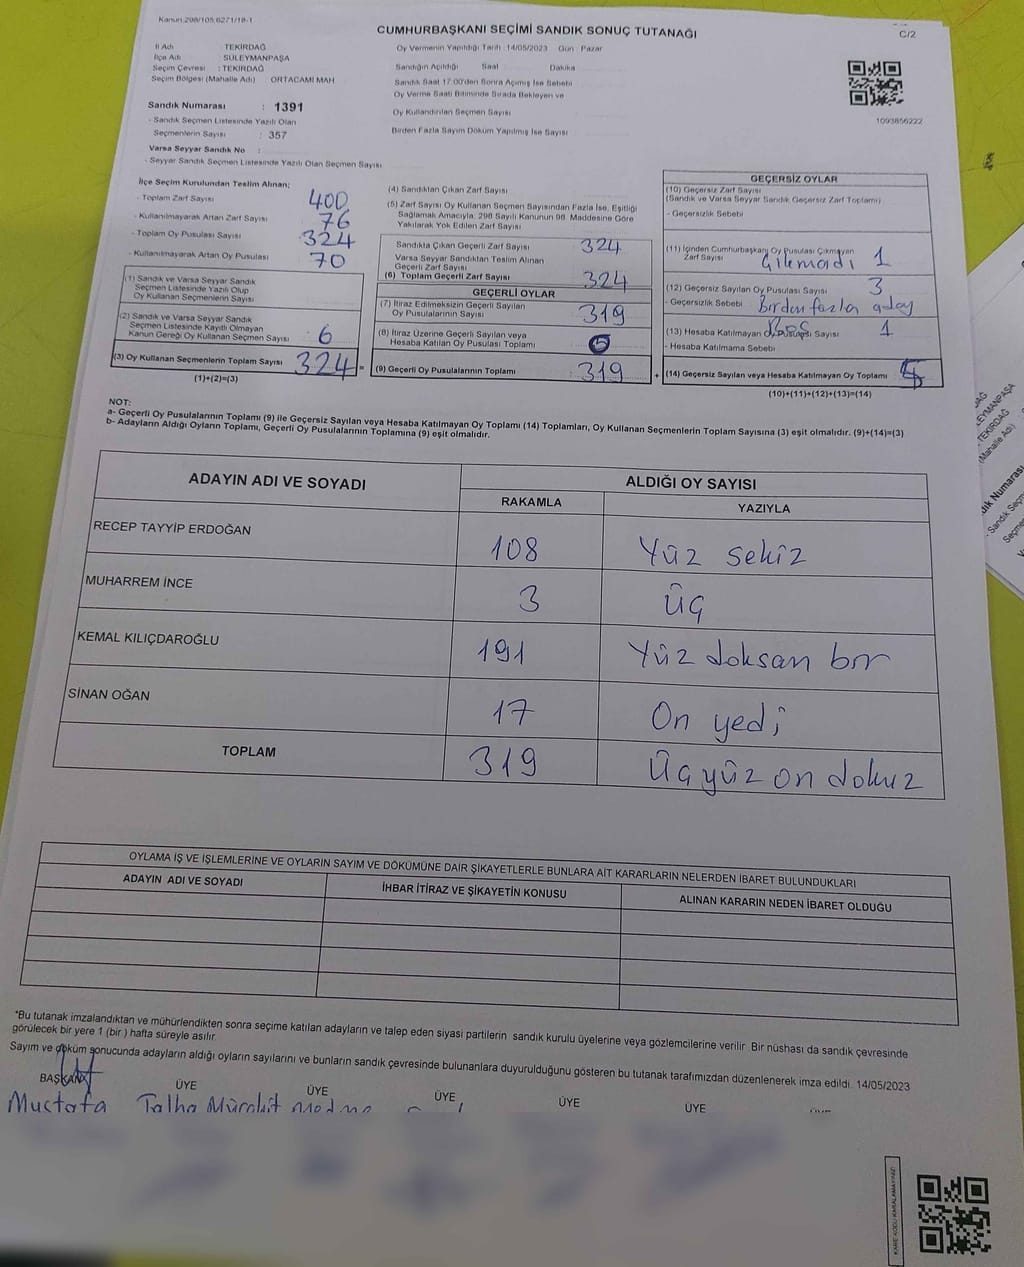 Kanun:298/105,6271/18-1
CUMHURBAŞKANI SEÇİMİ SANDIK SONUÇ TUTANAĞI
C/2
İl Adı TEKİRDAĞ
İlçe Adı SÜLEYMANPAŞA
Seçim Çevresi : TEKİRDAĞ
Seçim Bölgesi (Mahalle Adı) ORTACAMİ MAH
Sandık Numarası : 1391
- Sandık Seçmen Listesinde Yazılı Olan
Seçmenlerin Sayısı : 357
Varsa Seyyar Sandık No :
- Seyyar Sandık Seçmen Listesinde Yazılı Olan Seçmen Sayısı
Oy Vermenin Yapıldığı Tarih :14/05/2023 Gün : Pazar
Sandığın Açıldığı Saat Dakika
Sandık Saat 17:00'den Sonra Açılmış İse Sebebi
Oy Verme Saati Bitiminde Sırada Bekleyen ve
Oy Kullandırılan Seçmen Sayısı
Birden Fazla Sayım Döküm Yapılmış İse Sayısı
1093856222
İlçe Seçim Kurulundan Teslim Alınan;
- Toplam Zarf Sayısı 400
- Kullanılmayarak Artan Zarf Sayısı 76
- Toplam Oy Pusulası Sayısı 324
- Kullanılmayarak Artan Oy Pusulası 70
(1) Sandık ve Varsa Seyyar Sandık
Seçmen Listesinde Yazılı Olup
Oy Kullanan Seçmenlerin Sayısı
(2) Sandık ve Varsa Seyyar Sandık
Seçmen Listesinde Kayıtlı Olmayan
Kanun Gereği Oy Kullanan Seçmen Sayısı 6
(3) Oy Kullanan Seçmenlerin Toplam Sayısı 324 =
(1)+(2)=(3)
(4) Sandıktan Çıkan Zarf Sayısı
(5) Zarf Sayısı Oy Kullanan Seçmen Sayısından Fazla İse, Eşitliği
Sağlamak Amacıyla, 298 Sayılı Kanunun 98. Maddesine Göre
Yakılarak Yok Edilen Zarf Sayısı
Sandıkta Çıkan Geçerli Zarf Sayısı 324
Varsa Seyyar Sandıktan Teslim Alınan
Geçerli Zarf Sayısı
(6) Toplam Geçerli Zarf Sayısı 324
GEÇERLİ OYLAR
(7) İtiraz Edilmeksizin Geçerli Sayılan
Oy Pusulası Sayısı 319
(8) İtiraz Üzerine Geçerli Sayılan veya
Hesaba Katılan Oy Pusulası Toplamı
(9) Geçerli Oy Pusulalarının Toplamı 319 +
GEÇERSİZ OYLAR
(10) Geçersiz Zarf Sayısı
(Sandık ve Varsa Seyyar Sandık Geçersiz Zarf Toplamı)
- Geçersizlik Sebebi
(11) İçinden Cumhurbaşkanı Oy Pusulası Çıkmayan
Zarf Sayısı 1
(12) Geçersiz Sayılan Oy Pusulası Sayısı 3
- Geçersizlik Sebebi Birden fazla aday
(13) Hesaba Katılmayan Sayısı 1
- Hesaba Katılmama Sebebi
(14) Geçersiz Sayılan veya Hesaba Katılmayan Oy Toplamı 5
(10)+(11)+(12)+(13)=(14)
NOT:
a- Geçerli Oy Pusulalarının Toplamı (9) ile Geçersiz Sayılan veya Hesaba Katılmayan Oy Toplamı (14) Toplamları, Oy Kullanan Seçmenlerin Toplam Sayısına (3) eşit olmalıdır. (9)+(14)=(3)
b- Adayların Aldığı Oyların Toplamı, Geçerli Oy Pusulalarının Toplamına (9) eşit olmalıdır.
ADAYIN ADI VE SOYADI ALDIĞI OY SAYISI
RAKAMLA YAZIYLA
RECEP TAYYİP ERDOĞAN 108 Yüz sekiz
MUHARREM İNCE 3 üç
KEMAL KILIÇDAROĞLU 191 Yüz doksan bir
SİNAN OĞAN 17 On yedi
TOPLAM 319 Üçyüz on dokuz
OYLAMA İŞ VE İŞLEMLERİNE VE OYLARIN SAYIM VE DÖKÜMÜNE DAİR ŞİKAYETLERLE BUNLARA AİT KARARLARIN NELERDEN İBARET BULUNDUKLARI
ADAYIN ADI VE SOYADI İHBAR İTİRAZ VE ŞİKAYETİN KONUSU ALINAN KARARIN NEDEN İBARET OLDUĞU
*Bu tutanak imzalandıktan ve mühürlendikten sonra seçime katılan adayların ve talep eden siyasi partilerin sandık kurulu üyelerine veya gözlemcilerine verilir Bir nüshası da sandık çevresinde
görülecek bir yere 1 (bir ) hafta süreyle asılır
Sayım ve döküm sonucunda adayların aldığı oyların sayılarını ve bunların sandık çevresinde bulunanlara duyurulduğunu gösteren bu tutanak tarafımızdan düzenlenerek imza edildi. 14/05/2023
BAŞKAN ÜYE ÜYE ÜYE ÜYE ÜYE
Mustafa Talha
KARE KODU KARALAMAYINIZ!